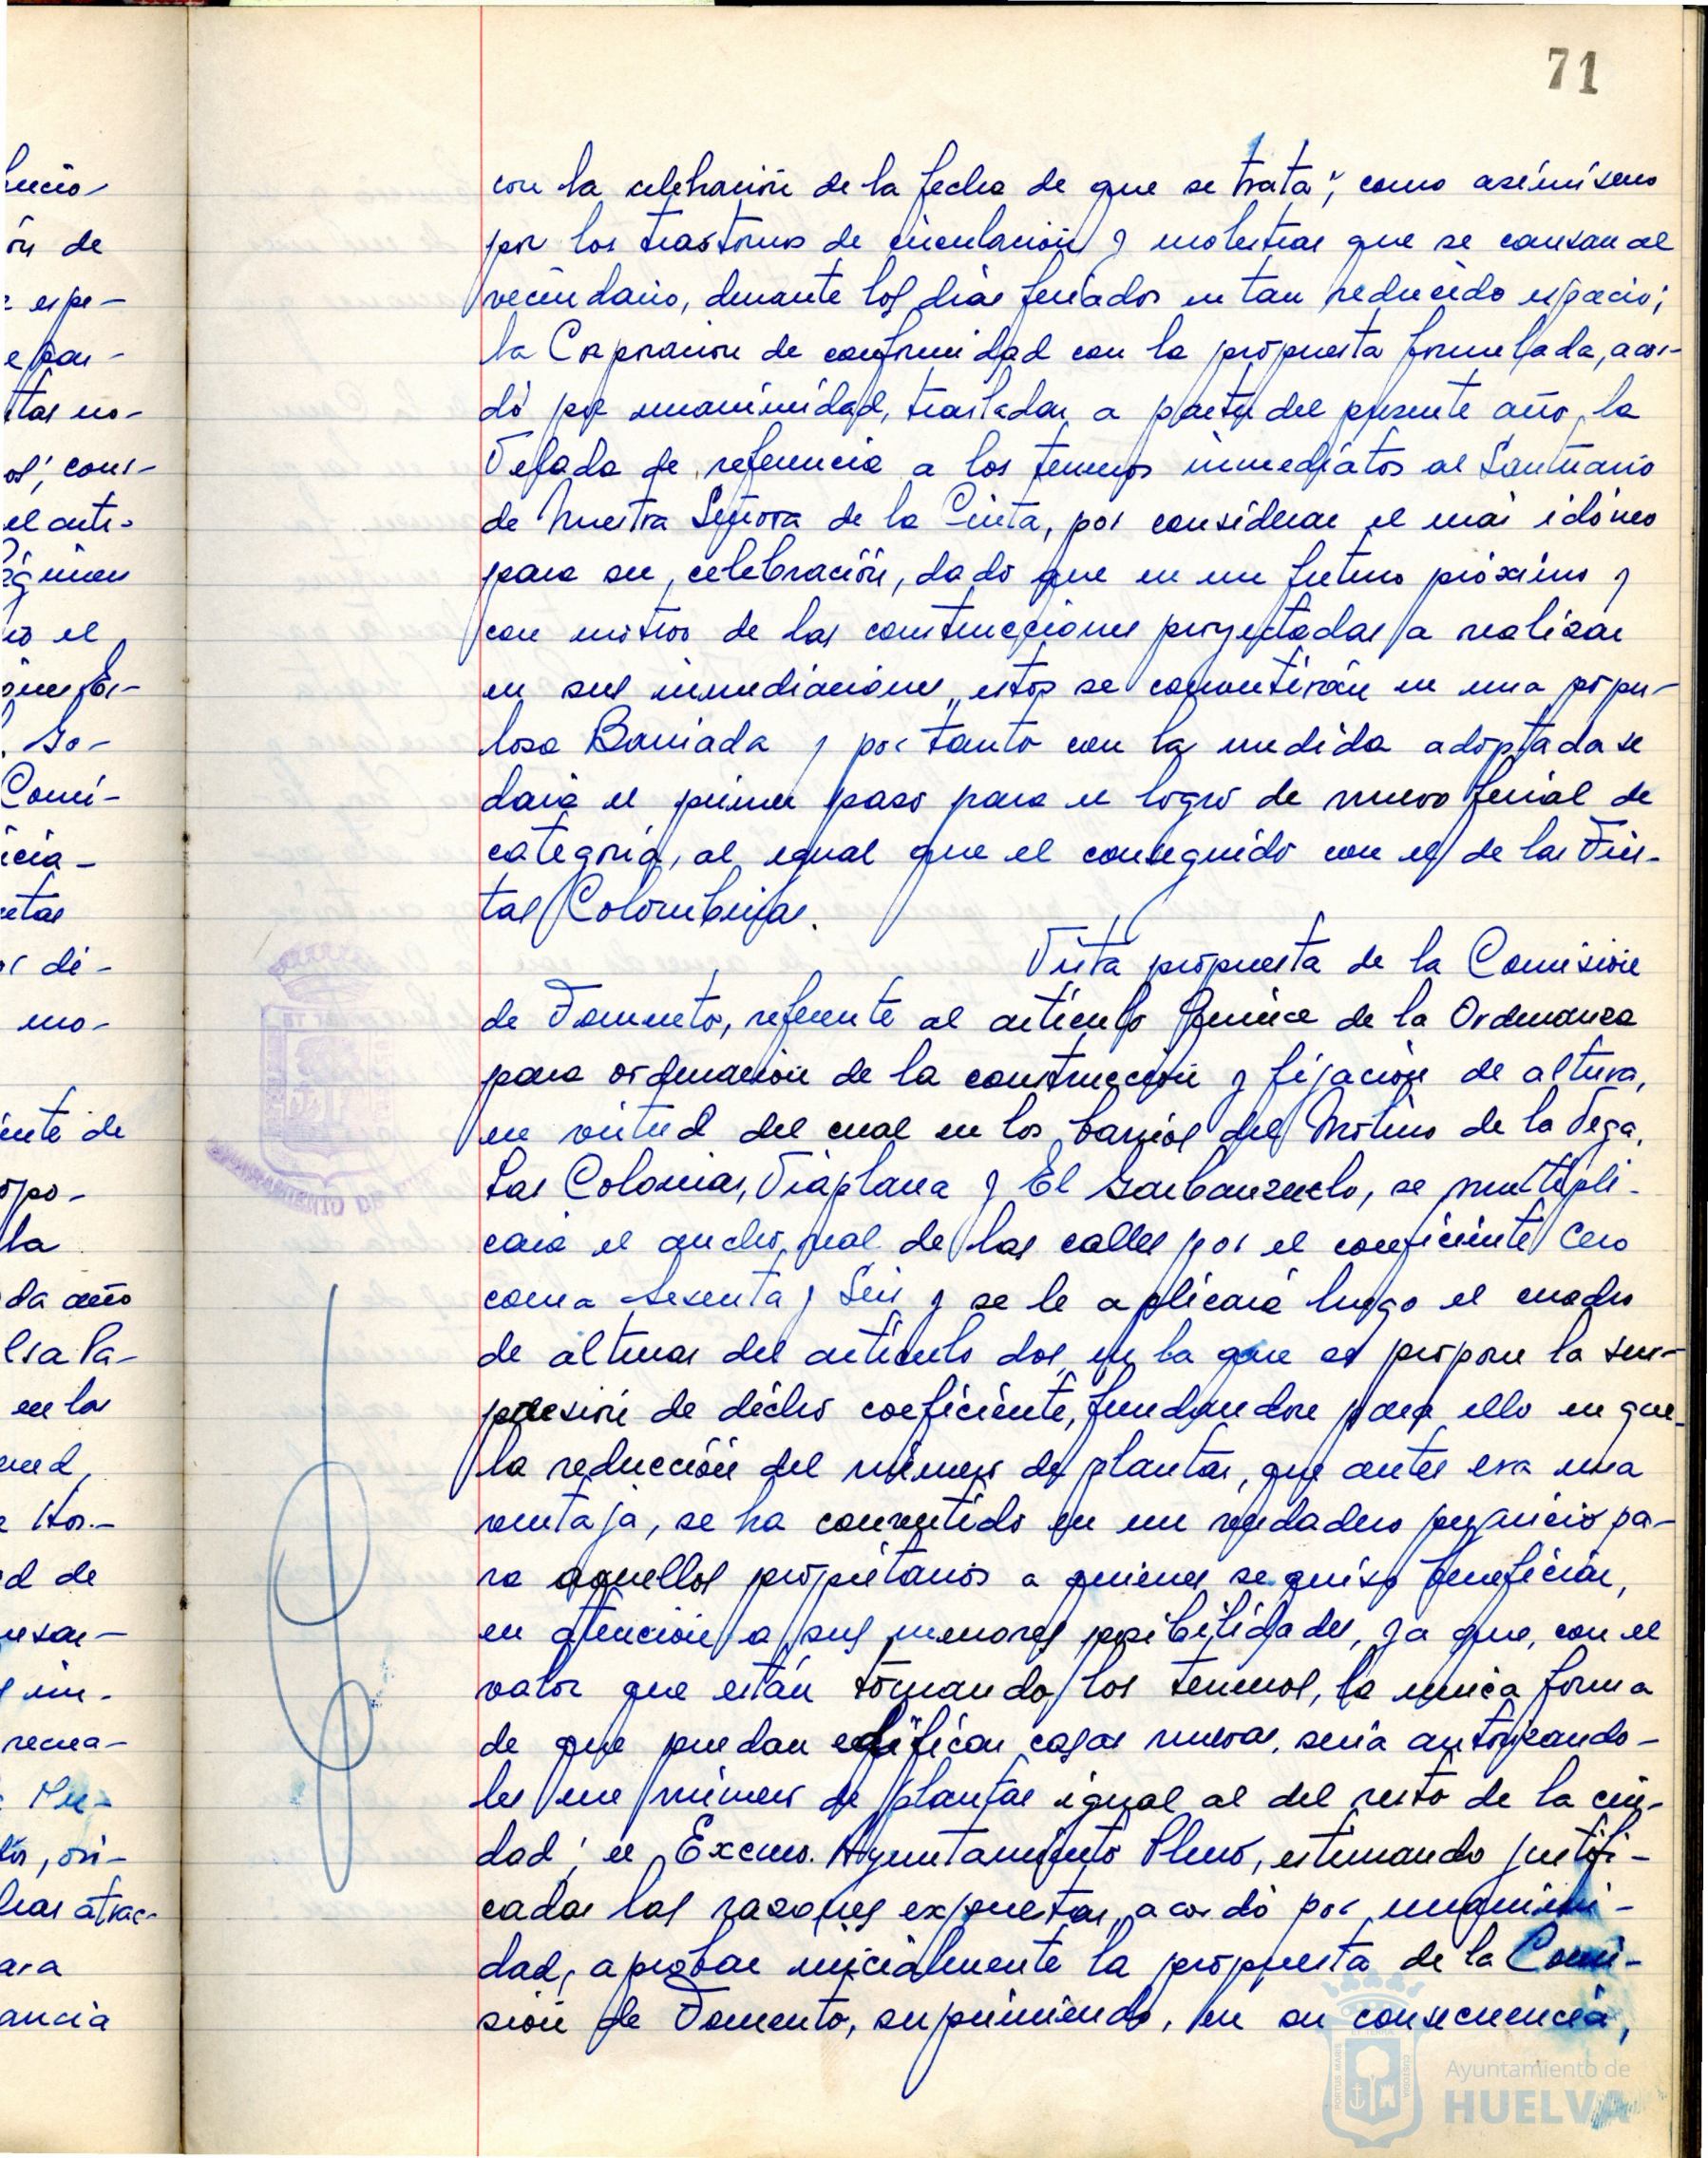 71
con la celebración de la fecha de que se trata; como asimismo
por los trastornos de circulación y molestias que se causan al
vecindario, durante los días feriados en tan reducido espacio;
la Corporación de conformidad con la propuesta formulada, acor-
dó por unanimidad, trasladar a partir del presente año, la
Velada de referencia a los terrenos inmediatos al Santuario
de Nuestra Señora de la Cinta, por considerar el mas idóneo
para su celebración, dado que en un futuro próximo y
con motivo de las construcciones proyectadas a realizar
en sus inmediaciones, estos se convertirán en una popu-
losa Barriada y por tanto con la medida adoptada se
daria el primer paso para el logro de nuevo ferial de
categoria, al igual que el conseguido con el de las Fies-
tas Colombinas.
Vista propuesta de la Comisión
de Fomento, referente al artículo Quince de la Ordenanza
para ordenación de la construcción y fijación de altura,
en virtud del cual en los barrios del Molino de la Vega,
Las Colonias, Viaplana y El Garbanzuelo, se multipli-
cará el ancho real de las calles por el coeficiente Cero
coma Sesenta y Seis y se le aplicará luego el cuadro
de alturas del artículo dos, en la que se propone la su-
presión de dicho coeficiente, fundandose para ello en que
la reducción del número de plantas, que antes era una
ventaja, se ha convertido en un verdadero perjuicio pa-
ra aquellos propietarios a quienes se quiso beneficiar,
en atención a sus menores posibilidades, ya que, con el
valor que están tomando los terrenos, la unica forma
de que puedan edificar casas nuevas, sería autorizando-
les un número de plantas igual al del resto de la ciu-
dad; el Excmo. Ayuntamiento Pleno, estimando justifi-
cadas las razones expuestas, acordó por unanimi-
dad, aprobar inicialmente la propuesta de la Comi-
sión de Fomento, suprimiendo, en su consecuencia,
ón de
espe-
tas no-
cons-
el arti-
no el
Go-
Comi-
di-
mo-
ente de
la
da año
en los
d de
recrea-
Mu-
ori-
atrac-
ara
ancia
Ayuntamiento de
HUELVA